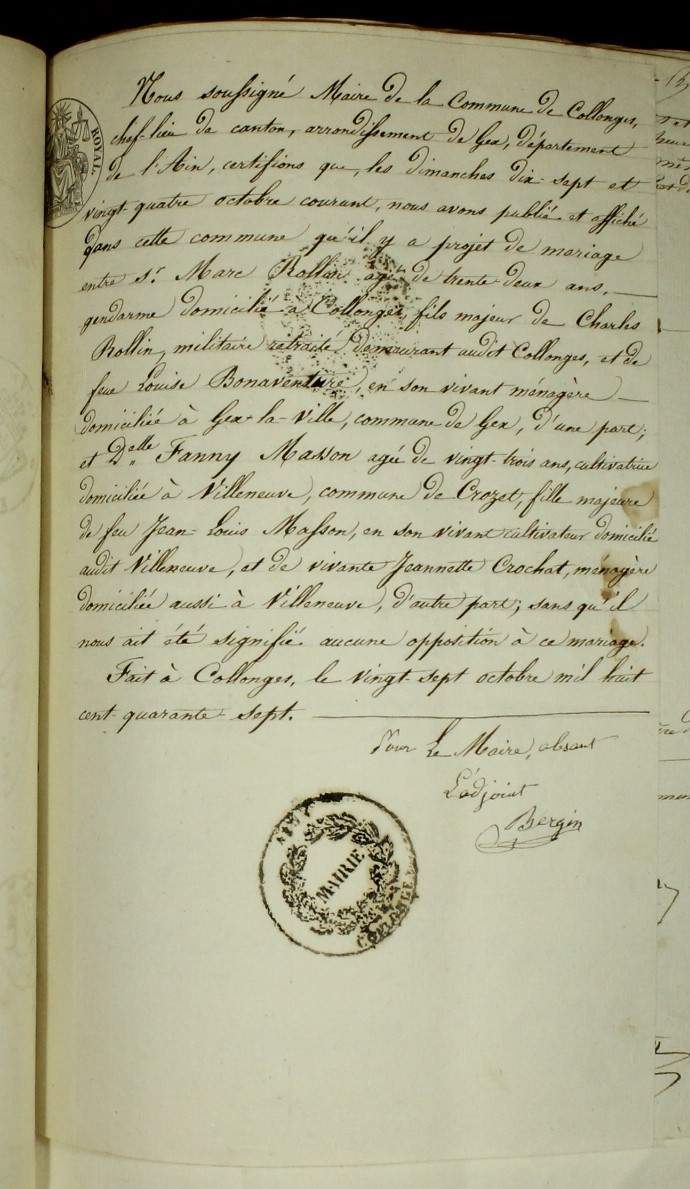 Nous soussigné Maire de la Commune de Collonges,
chef-lieu de canton, arrondissement de Gex, département
de l'Ain, certifions que, les dimanches dix-sept et
vingt-quatre octobre courant, nous avons publié et affiché
dans cette commune qu'il y a projet de mariage
entre Sr. Marc Rollin agé de trente-deux ans,
gendarme domicilié à Collonges, fils majeur de Charles
Rollin, militaire retraité demeurant audit Collonges, et de
feue Louise Bonaventure, en son vivant ménagère
domiciliée à Gex-la-Ville, commune de Gex, d'une part;
et Delle Fanny Masson agée de vingt-trois ans, cultivatrice
domiciliée à Villeneuve, commune de Crozet, fille majeure
de feu Jean-Louis Masson, en son vivant cultivateur domicilié
audit Villeneuve, et de vivante Jeannette Crochat, ménagère
domiciliée aussi à Villeneuve, d'autre part; sans qu'il
nous ait été signifié aucune opposition à ce mariage.
Fait à Collonges, le vingt-sept octobre mil huit
cent-quarante-sept.
Pour Le Maire, absent
L'adjoint
Bergin
ROYAL
MAIRIE
COLLONGES